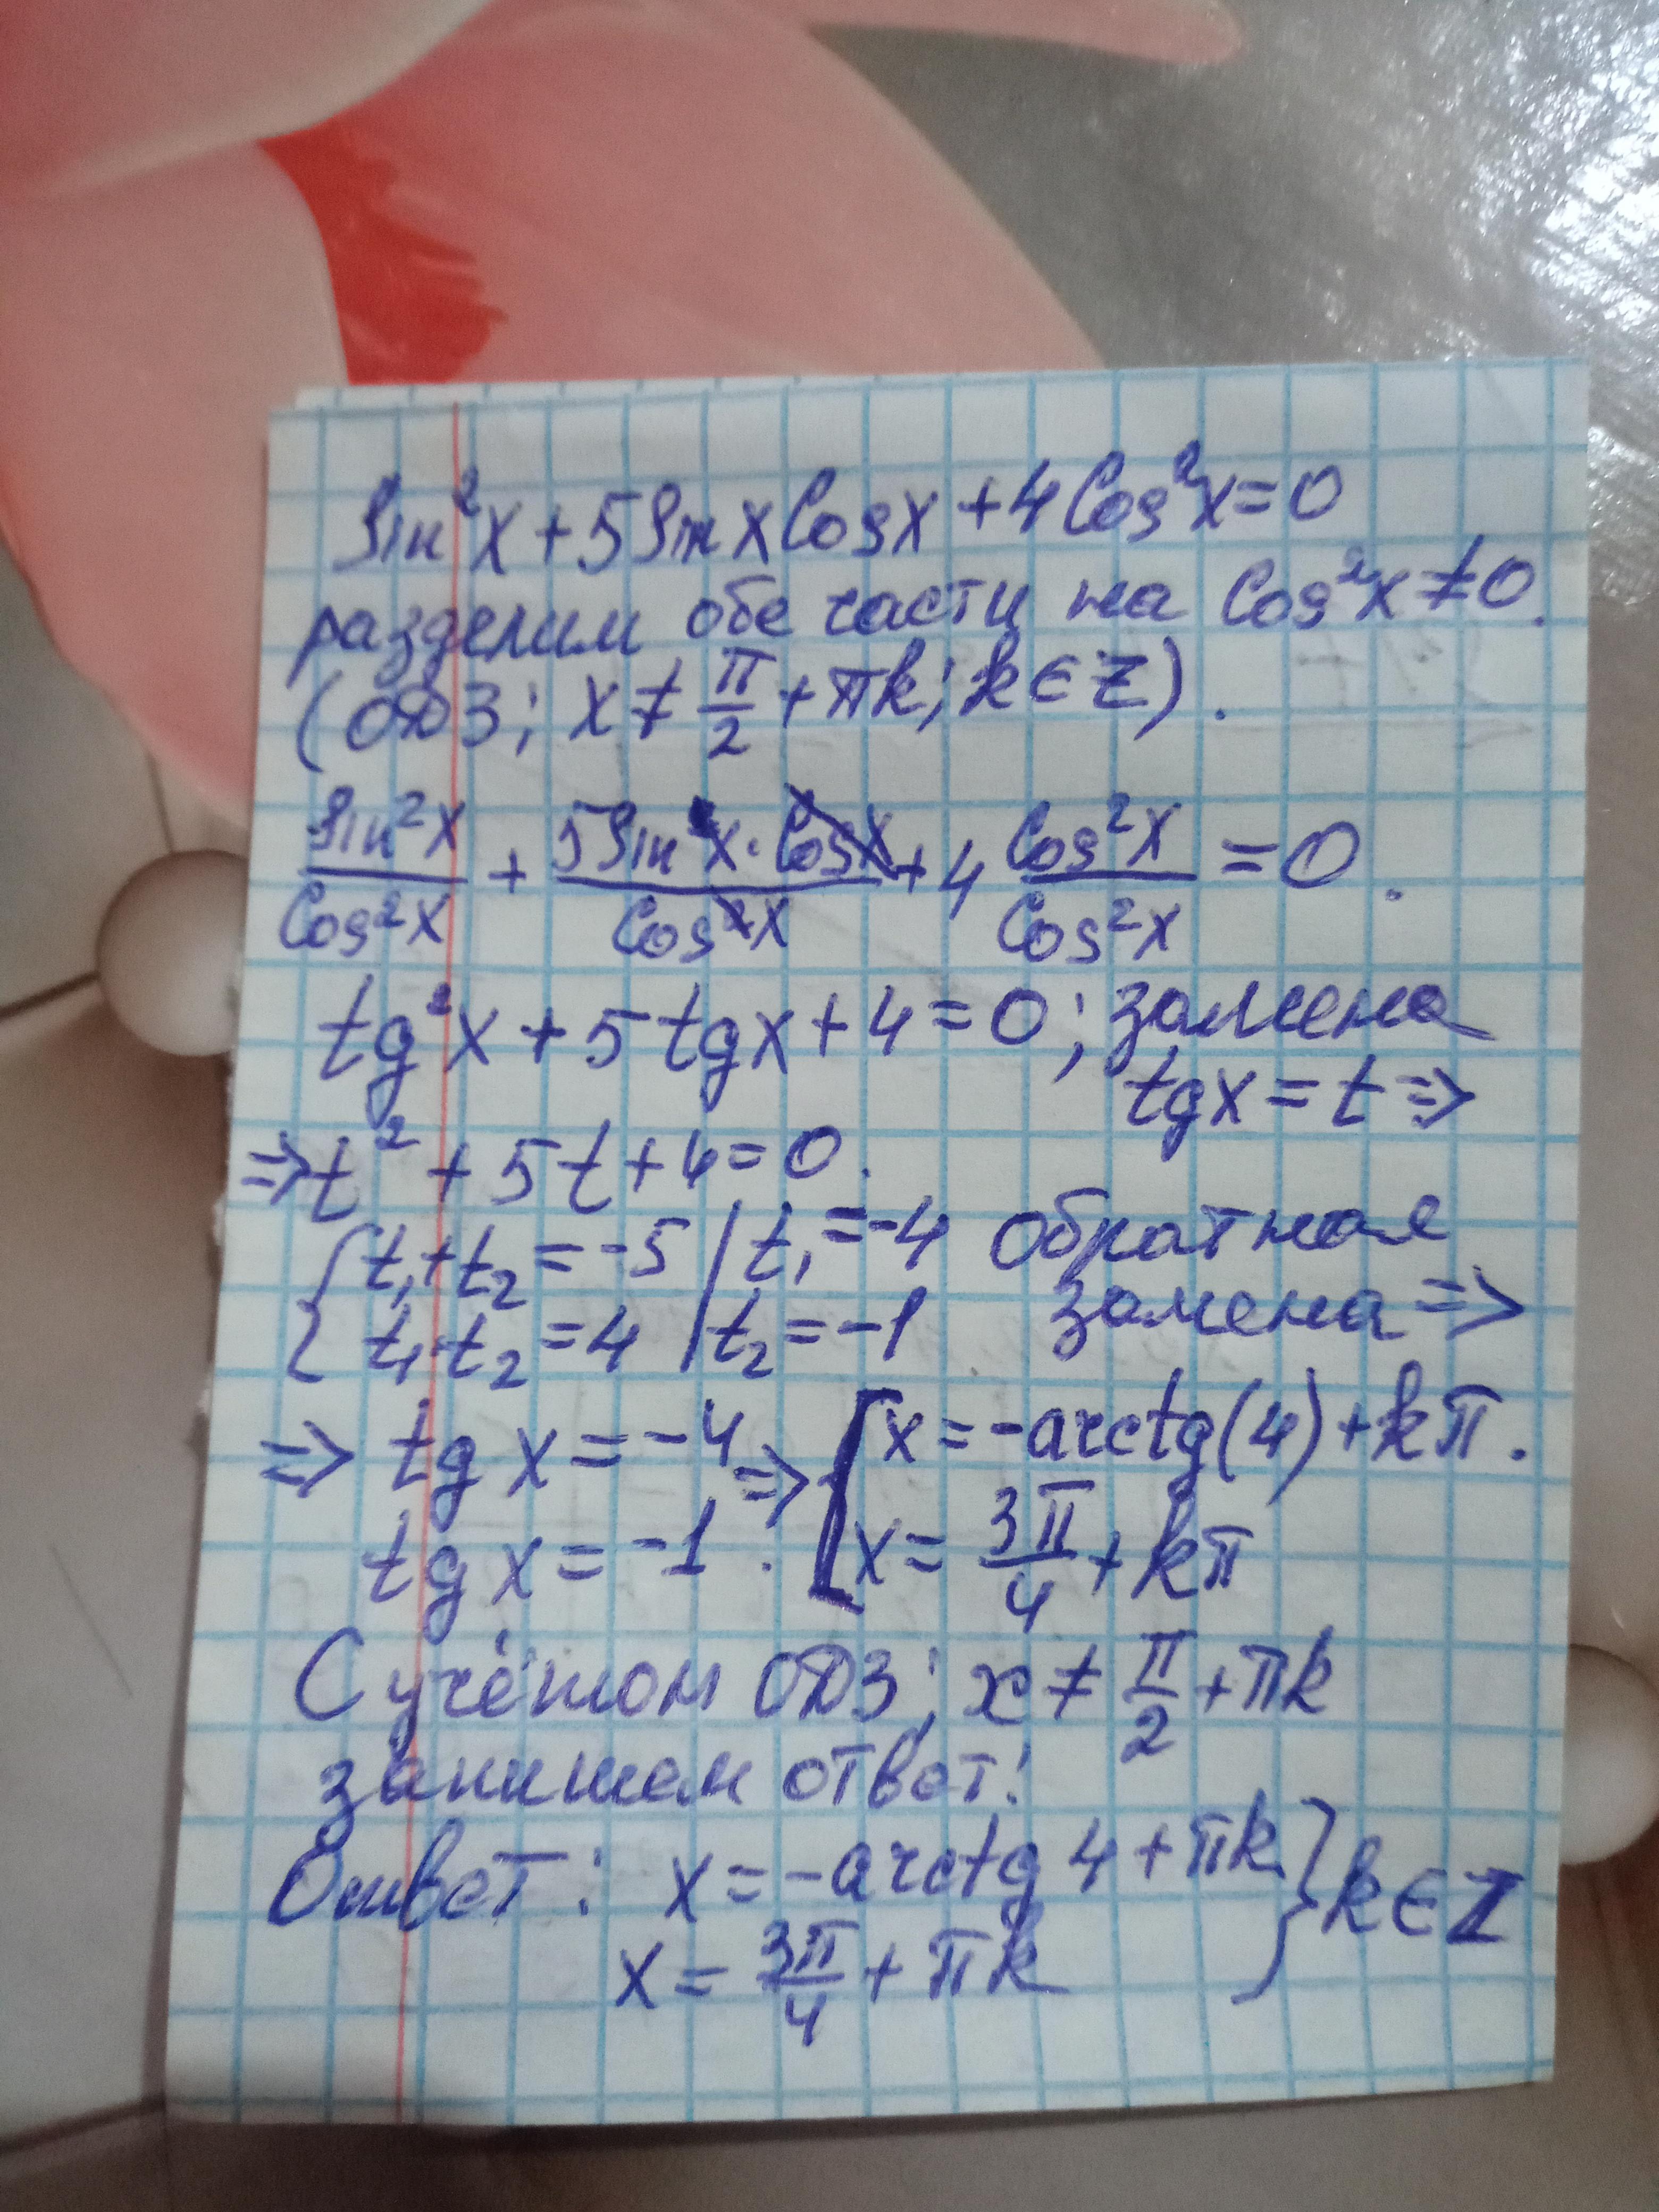 sin²x + 5sin x cos x + 4cos²x = 0
разделим обе части на cos²x ≠ 0.
(ОДЗ; x ≠ π/2 + πk; k ∈ Z).
sin²x/cos²x + 5sin x · cos x/cos²x + 4 cos²x/cos²x = 0.
tg²x + 5tgx + 4 = 0; замена
tgx = t ⇒
⇒ t² + 5t + 4 = 0.
{ t₁ + t₂ = -5 | t₁ = -4 обратная
t₁ · t₂ = 4 | t₂ = -1 замена ⇒
⇒ tg x = -4 ⇒ [ x = -arctg(4) + kπ.
tg x = -1 . x = 3π/4 + kπ
С учётом ОДЗ; x ≠ π/2 + πk
запишем ответ:
Ответ: x = -arctg 4 + πk } k ∈ Z
x = 3π/4 + πk